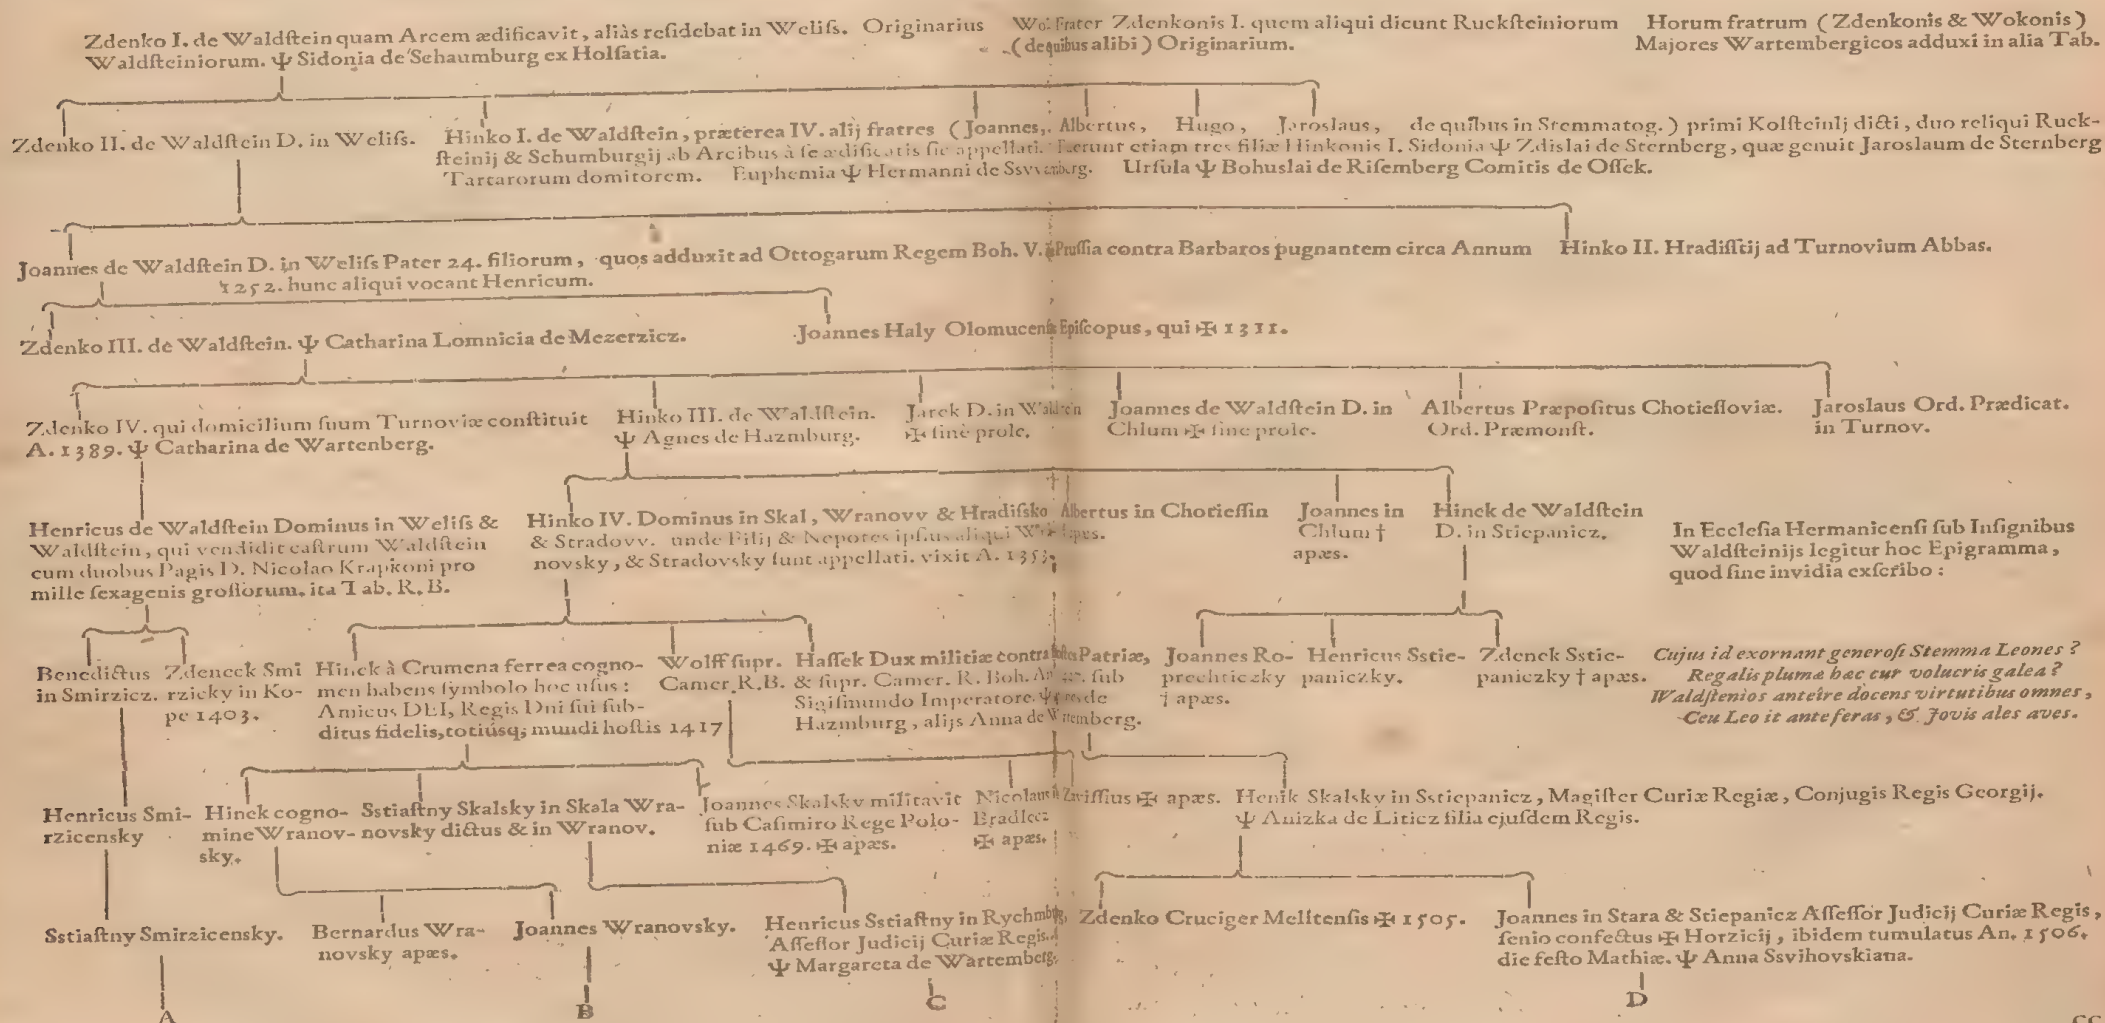 Zdenko I. de Waldſtein quam Arcem ædificavit, aliàs reſidebat in Weliſs. Originarius
Waldſteiniorum. Ψ Sidonia de Schaumburg ex Holſatia.
Frater Zdenkonis I. quem aliqui dicunt Ruckſteiniorum
(de quibus alibi) Originarium.
Horum fratrum (Zdenkonis & Wokonis)
Majores Wartembergicos adduxi in alia Tab.
Zdenko II. de Waldſtein D. in Weliſs.
Hinko I. de Waldſtein, præterea IV. alij fratres (Joannes, Albertus, Hugo, Jaroslaus, de quibus in Stemmatog.) primi Kolſteinij dicti, duo reliqui Ruck-
ſteinij & Schumburgij ab Arcibus à ſe ædificatis ſic appellati. Fuerunt etiam tres filiæ Hinkonis I. Sidonia Ψ Zdislai de Sternberg, quæ genuit Jaroslaum de Sternberg
Tartarorum domitorem. Euphemia Ψ Hermanni de Urſula Ψ Bohuslai de Riſemberg Comitis de Oſſek.
Joannes de Waldſtein D. in Weliſs Pater 24. filiorum, quos adduxit ad Ottogarum Regem Boh. V. Pruſſia contra Barbaros pugnantem circa Annum
1252. hunc aliqui vocant Henricum.
Hinko II. Hradiſtij ad Turnovium Abbas.
Zdenko III. de Waldſtein. Ψ Catharina Lomnicia de Mezerzicz.
Joannes Haly Olomucenſis Epiſcopus, qui ✠ 1311.
Zdenko IV. qui domicilium ſuum Turnoviæ conſtituit
A. 1389. Ψ Catharina de Wartenberg.
Hinko III. de Waldſtein.
Ψ Agnes de Hazmburg.
Jarek D. in Waldſtein
✠ ſine prole.
Joannes de Waldſtein D. in
Chlum ✠ ſine prole.
Albertus Præpoſitus Chotieſſoviæ.
Ord. Præmonſt.
Jaroslaus Ord. Prædicat.
in Turnov.
Henricus de Waldſtein Dominus in Weliſs &
Waldſtein, qui vendidit caſtrum Waldſtein
cum duobus Pagis D. Nicolao Krapkoni pro
mille ſexagenis groſſorum. ita Tab. R. B.
Hinko IV. Dominus in Skal, Wranovv & Hradiſsko
& Stradovv. unde Filij & Nepotes ipſius aliqui
novsky, & Stradovsky ſunt appellati. vixit A. 1353.
Albertus in Chotieſſin
apæs.
Joannes in
Chlum †
apæs.
Hinck de Waldſtein
D. in Stiepanicz.
In Eccleſia Hermanicenſi ſub Inſignibus
Waldſteinijs legitur hoc Epigramma,
quod ſine invidia exſcribo:
Benedictus
in Smirzicz.
Zdeneck Smi
rzicky in Ko-
pc 1403.
Hinck à Crumena ferrea cogno-
men habens ſymbolo hoc uſus:
Amicus DEI, Regis Dni ſui ſub-
ditus fidelis, totiúsq; mundi hoſtis 1417
Wolff ſupr.
Camer. R. B.
Haſſek Dux militiæ contra hoſtes Patriæ,
& ſupr. Camer. R. Boh. ſub
Sigiſmundo Imperatore. Ψ de
Hazmburg, alijs Anna de Wartemberg.
Joannes Ro-
prechticzky
† apæs.
Henricus Sstie-
paniczky.
Zdenek Sstie-
paniczky † apæs.
Cujus id exornant generoſi Stemma Leones?
Regalis plumæ hæc cur volucris galea?
Waldſtenios anteire docens virtutibus omnes,
Ceu Leo it ante feras, & Jovis ales aves.
Henricus Smi-
rzicensky
Hinck cogno-
mine Wranov-
sky.
Sstiaſtny Skalsky in Skala Wra-
novsky dictus & in Wranov.
Joannes Skalsky militavit
ſub Caſimiro Rege Polo-
niæ 1469. ✠ apæs.
Nicolaus
Bradlecz
✠ apæs.
Zaviſſius ✠ apæs.
Henik Skalsky in Sstiepanicz, Magiſter Curiæ Regiæ, Conjugis Regis Georgij.
Ψ Anizka de Liticz filia ejuſdem Regis.
Sstiaſtny Smirzicensky.
Bernardus Wra-
novsky apæs.
Joannes Wranovsky.
Henricus Sstiaſtny in Rychmbg,
Aſſeſſor Judicij Curiæ Regis.
Ψ Margareta de Wartemberg.
Zdenko Cruciger Melitenſis ✠ 1505.
Joannes in Stara & Stiepanicz Aſſeſſor Judicij Curiæ Regis,
ſenio confectus ✠ Horzicij, ibidem tumulatus An. 1506.
die feſto Mathiæ. Ψ Anna Ssvihovskiana.
A
B
C
D